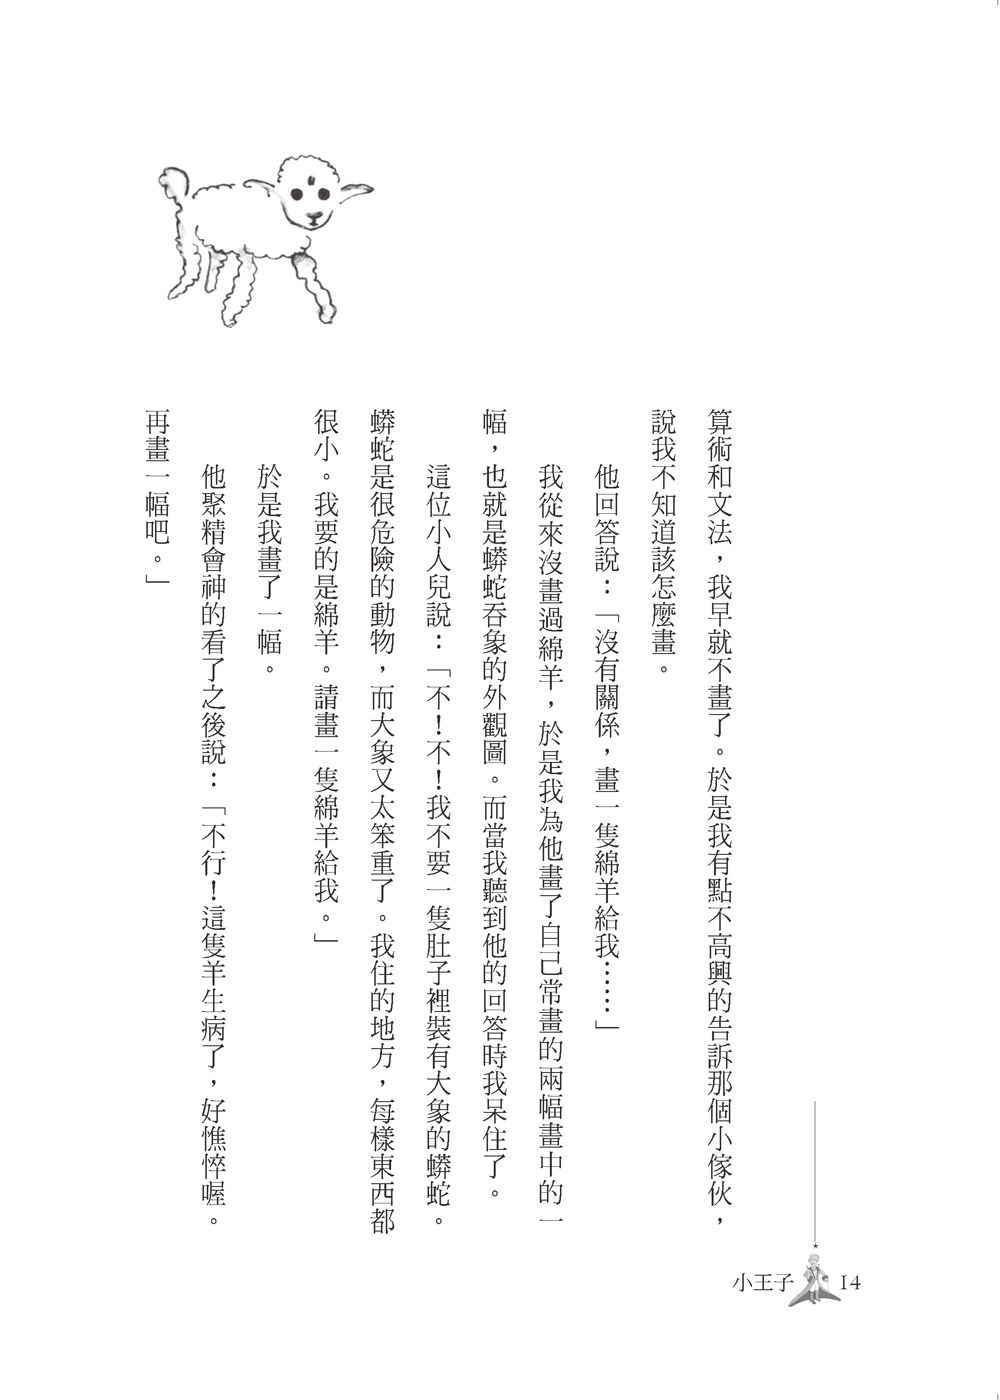 算術和文法，我早就不畫了。於是我有點不高興的告訴那個小傢伙，
說我不知道該怎麼畫。
他回答說：「沒有關係，畫一隻綿羊給我……」
我從來沒畫過綿羊，於是我為他畫了自己常畫的兩幅畫中的一
幅，也就是蟒蛇吞象的外觀圖。而當我聽到他的回答時我呆住了。
這位小人兒說：「不！不！我不要一隻肚子裡裝有大象的蟒蛇。
蟒蛇是很危險的動物，而大象又太笨重了。我住的地方，每樣東西都
很小。我要的是綿羊。請畫一隻綿羊給我。」
於是我畫了一幅。
他聚精會神的看了之後說：「不行！這隻羊生病了，好憔悴喔。
再畫一幅吧。」
小王子 14